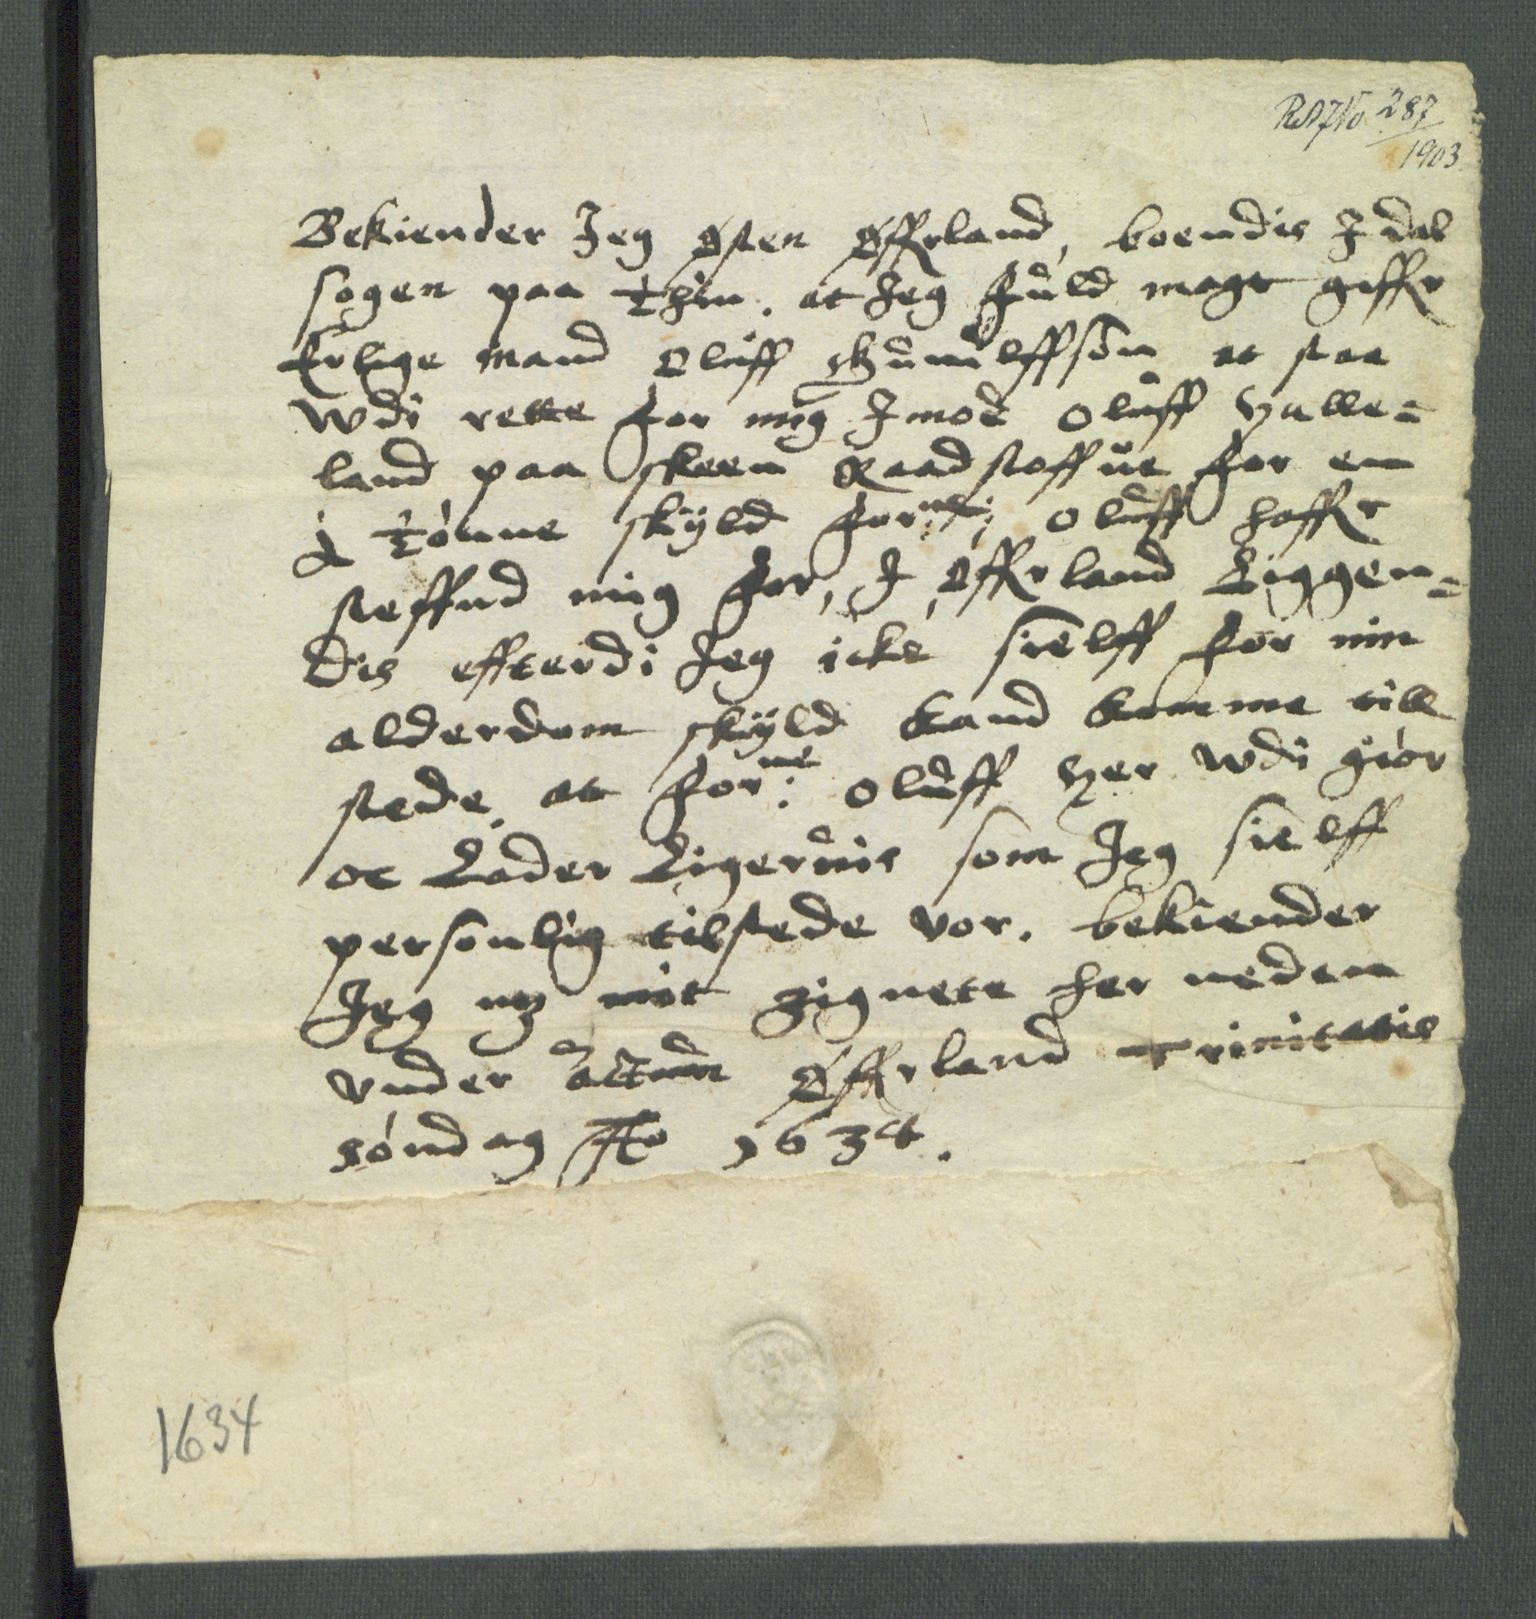 RA JNo 287/1903
Bekiender Jeg østen øffrland, boendis J dal
sogen paa thin. at Jeg fuld magt giffr
Erlige mand Oluff gunulffsøn at staa
wdi rette for mig Jmod Oluff Halle-
land paa skeen Raadstoffue for en
½ tønne skyld forne: Oluff haffr
steffnd mig for, J øffrland Liggen-
dis effterdi Jeg icke sielff for min
alderdom skyld kand komme till
stede, at forne: Oluff Her wdi giør
oc Lader Ligeruis som Jeg sielff
personlig tilstede vor. bekiender
Jeg mz mit zignete her neden
vnder actum Øffrland trinitatis
søndag Ao 1634.
1634